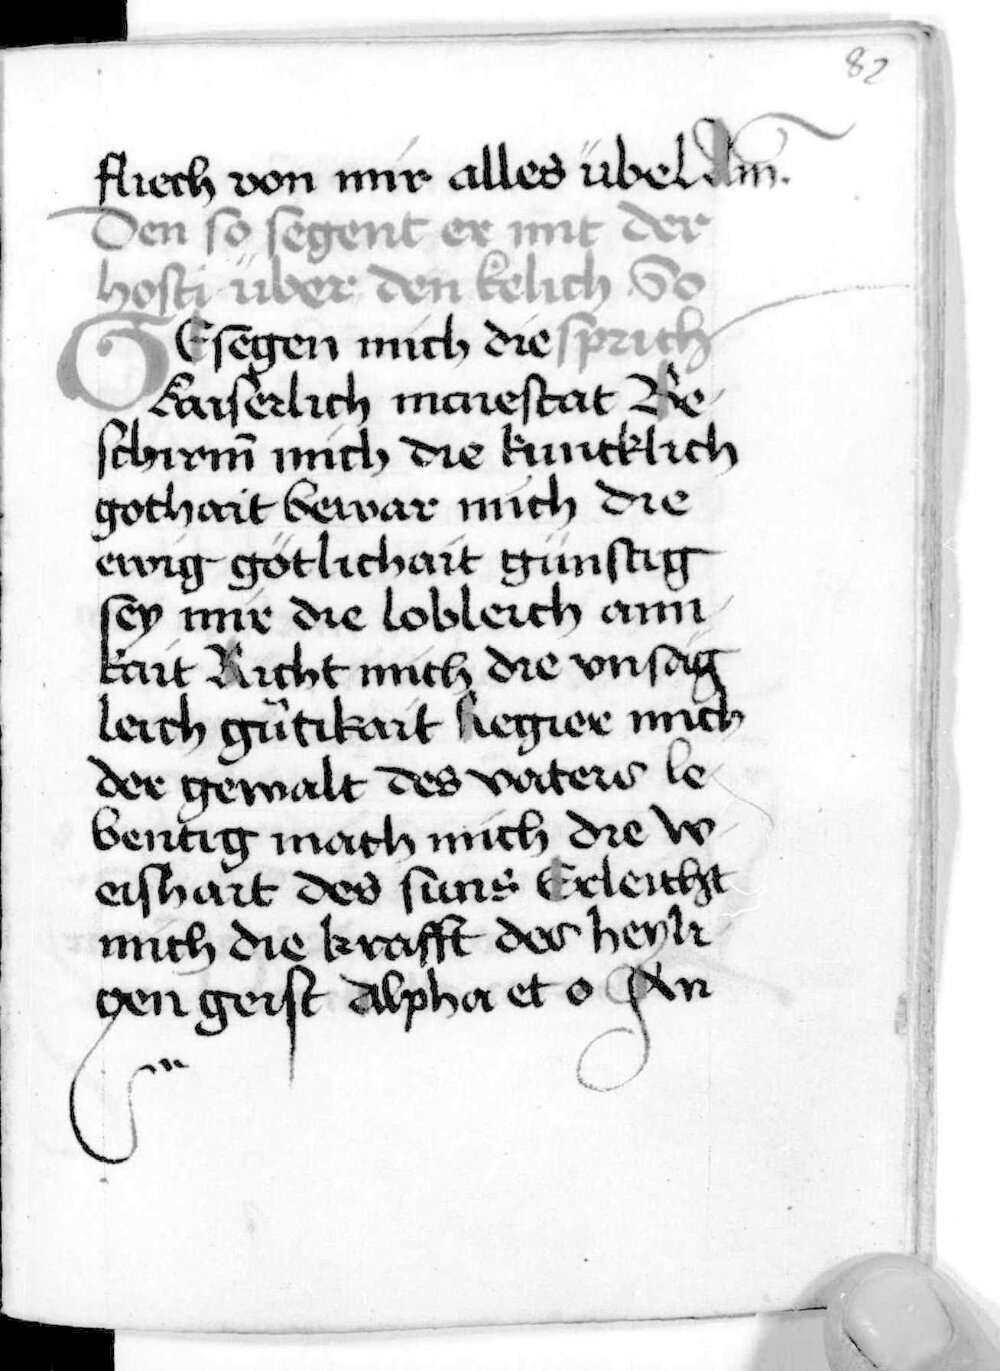 82
fliech von mir alles übel Am̄.
Den so segent er mit der
hosti über den kelich So
GEsegen mich die sprich
kaiserlich maiestat Be
schirm̄ mich die kunicklich
gothait bewar mich die
ewig götlichait günstig
sey mir die lobleich aini
kait Richt mich die vnsäg
leich gütikait Regier mich
der gewalt des vaters le
bentig mach mich die w
eishait des suns Erleicht
mich die krafft des heyli
gen geist Alpha et o